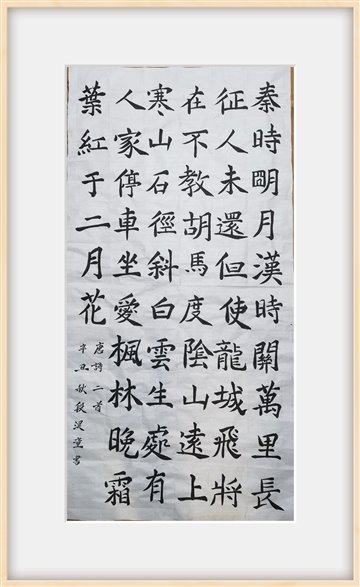 秦時明月漢時關萬里長
征人未還但使龍城飛將
在不教胡馬度陰山遠上
寒山石徑斜白雲生處有
人家停車坐愛楓林晚霜
葉紅于二月花
唐詩二首
辛丑秋段童書